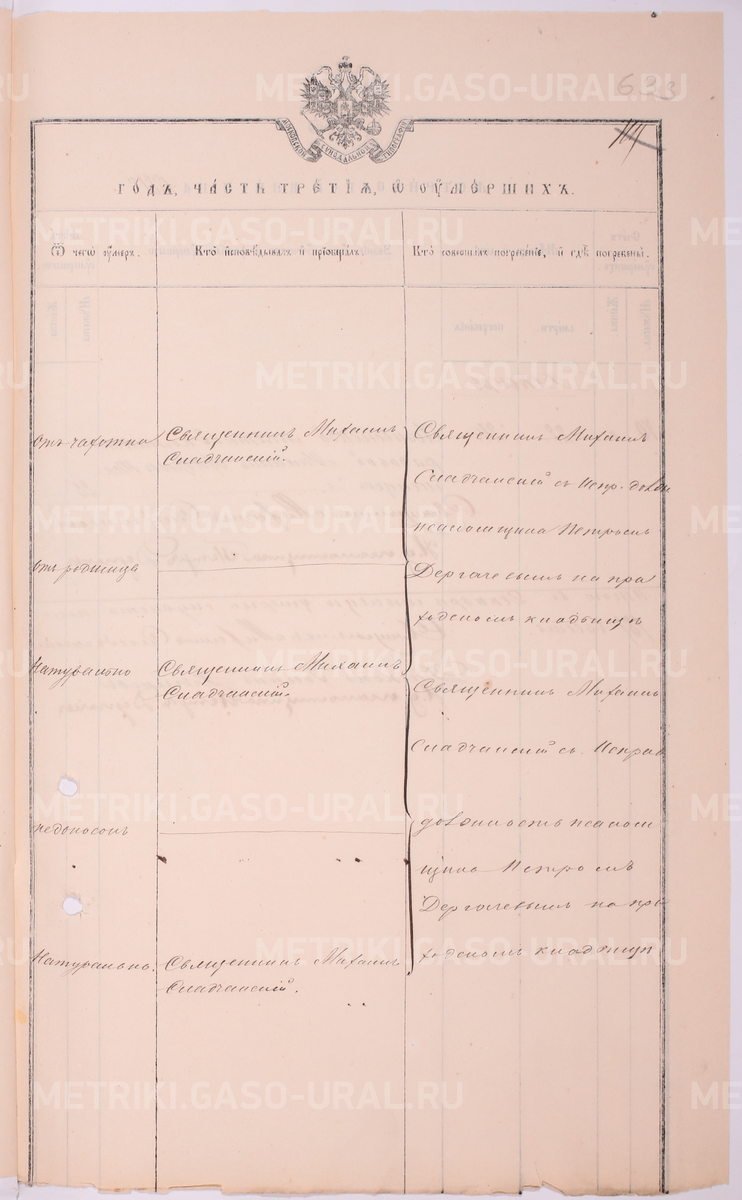 693
МОСКОВСКОЙ СѴНОДАЛЬНОЙ ТИПОГРАФІИ
ГОДЪ, ЧАСТЬ ТРЕТІЯ, Ѿ ОУМЕРШИХЪ.
Ѿ чегѡ оумеръ.
Кто исповѣдывалъ и пріобщалъ.
Кто совершалъ погребеніе, и гдѣ погребены.
отъ чахотки
Священникъ Михаилъ
Сладчанскій.
Священникъ Михаилъ
Сладчанскій съ Испр. должн
псаломщика Петромъ
Дергачевымъ на при
ходскомъ кладбищѣ
отъ родимца
натурально
Священникъ Михаилъ
Сладчанскій.
Священникъ Михаилъ
Сладчанскій съ Исправ.
должность псалом
щика Петромъ
Дергачевымъ на при
ходскомъ кладбищѣ
недоносокъ
Натурально.
Священникъ Михаилъ
Сладчанскій.
METRIKI.GASO-URAL.RU